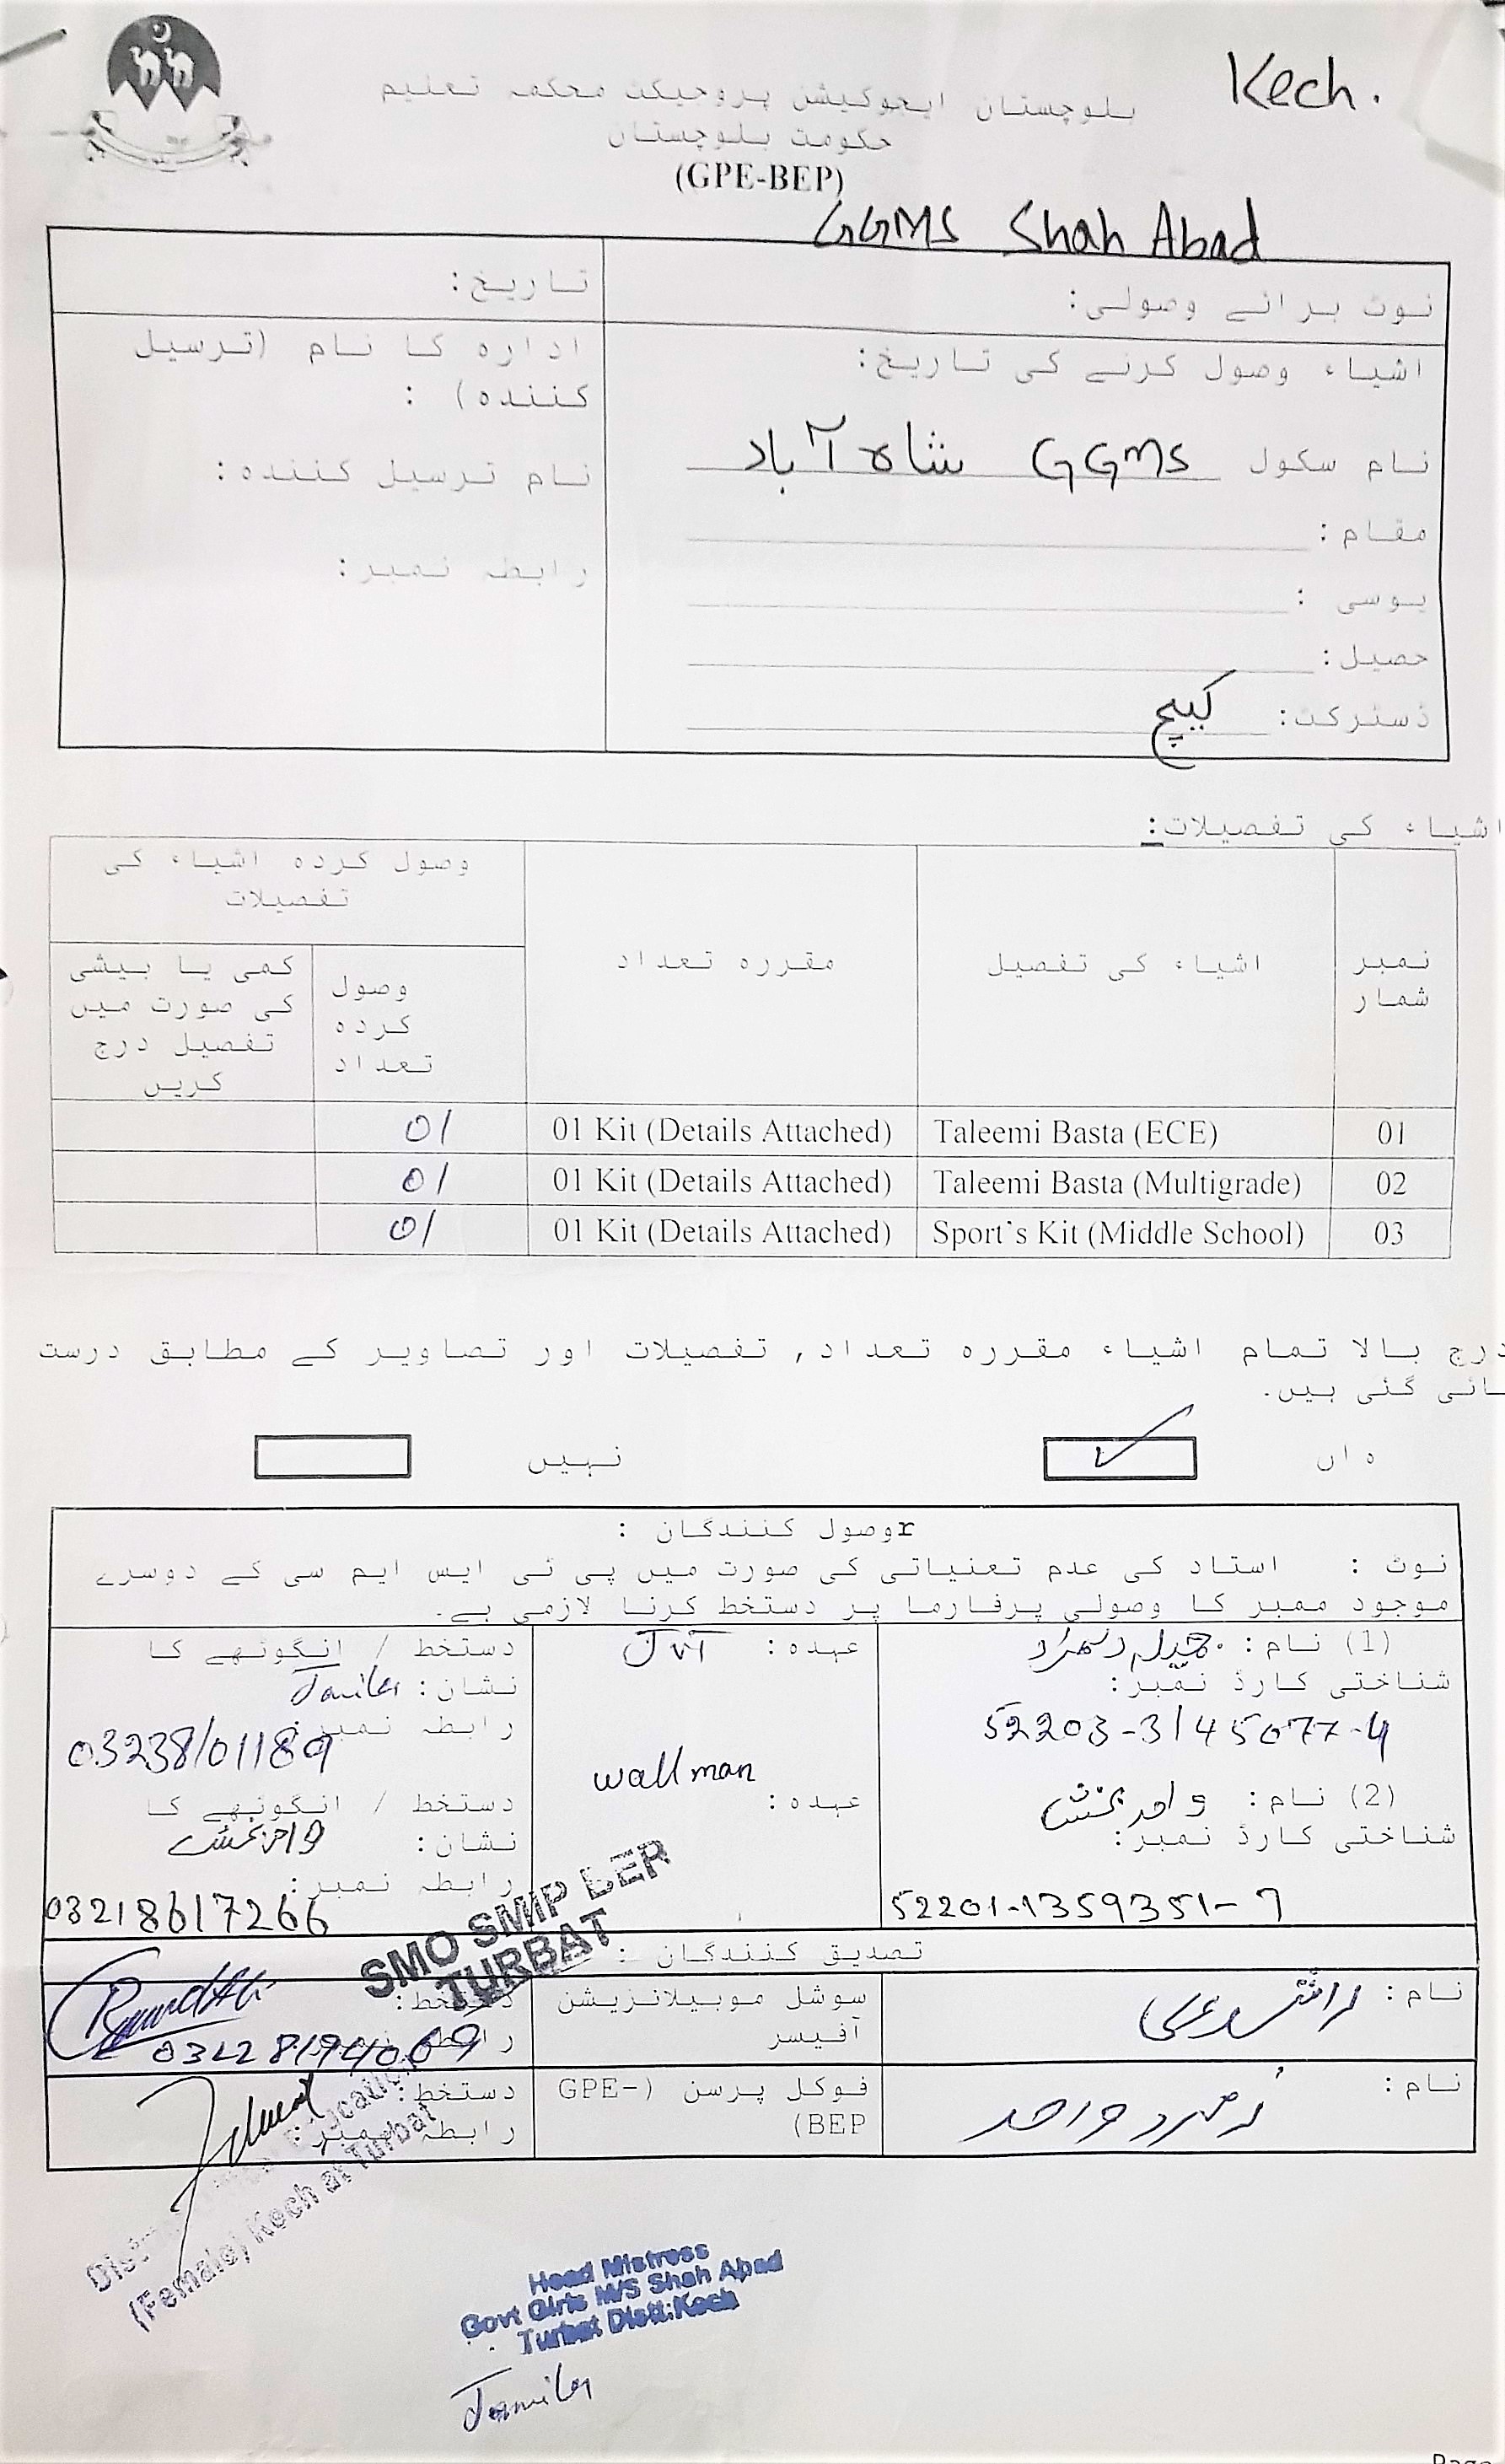 Kech.
بلوچستان ایجوکیشن پروجیکٹ محکمہ تعلیم
حکومت بلوچستان
(GPE-BEP)
GGMS Shah Abad
نوٹ برائے وصولی:
تاریخ:
اشیاء وصول کرنے کی تاریخ:
نام سکول GGMS شاہ آباد
مقام:
یوسی :
حصیل:
ڈسٹرکٹ: کیچ
ادارہ کا نام (ترسیل
کنندہ) :
نام ترسیل کنندہ:
رابطہ نمبر:
اشیاء کی تفصیلات:
نمبر شمار
اشیاء کی تفصیل
مقررہ تعداد
وصول کردہ اشیاء کی
تفصیلات
وصول
کردہ
تعداد
کمی یا بیشی
کی صورت میں
تفصیل درج
کریں
01 Taleemi Basta (ECE) 01 Kit (Details Attached) 01
02 Taleemi Basta (Multigrade) 01 Kit (Details Attached) 01
03 Sport's Kit (Middle School) 01 Kit (Details Attached) 01
درج بالا تمام اشیاء مقررہ تعداد, تفصیلات اور تصاویر کے مطابق درست
ائی گئی ہیں.
ہاں
نہیں
rوصول کنندگان :
نوٹ : استاد کی عدم تعنیاتی کی صورت میں پی ٹی ایس ایم سی کے دوسرے
موجود ممبر کا وصولی پرفارما پر دستخط کرنا لازمی ہے.
(1) نام:
عہدہ: JVT
دستخط / انگوٹھے کا
نشان: Jamila
شناختی کارڈ نمبر:
52203-3145077-4
رابطہ نمبر:
03238101189
(2) نام: واحد بخش
عہدہ: wallman
دستخط / انگوٹھے کا
نشان: واحد بخش
شناختی کارڈ نمبر:
52201-1359351-7
رابطہ نمبر:
03218617266
SMO SMIP
TURBAT
تصدیق کنندگان :
نام:
سوشل موبیلائزیشن
آفیسر
دستخط:
رابطہ نمبر:
نام:
فوکل پرسن (GPE-
BEP)
دستخط:
رابطہ نمبر:
(Female) Kech at Turbat
Head Mistress
Govt Girls M/S Shah Abad
Turbat Distt:Kech
Jamila